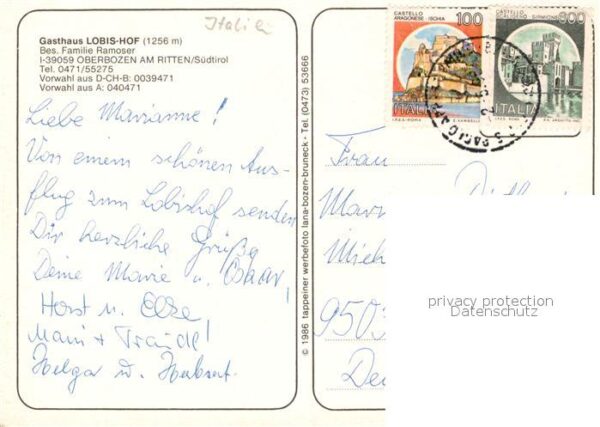 Italien
Gasthaus LOBIS-HOF (1256 m)
Bes. Familie Ramoser
I-39059 OBERBOZEN AM RITTEN/Südtirol
Tel. 0471/55275
Vorwahl aus D-CH-B: 0039471
Vorwahl aus A: 040471
Liebe Marianne!
Von einem schönen Aus-
flug zum Lobishof senden
Dir herzliche Grüße
Deine Marie u. Oskar!
Horst u. Elke
+ Traudl!
Helga u. Herbert
© 1986 tappeiner werbefoto lana-bozen-bruneck - Tel. (0473) 53666
CASTELLO
ARAGONESE - ISCHIA 100
ITALIA
I.P.Z.S. ROMA E. VANGELLI
CASTELLO
SCALIGERO SIRMIONE
ITALIA
I.P.Z.S. ROMA
Frau
Mari
Mich
9503
Deu
privacy protection
Datenschutz